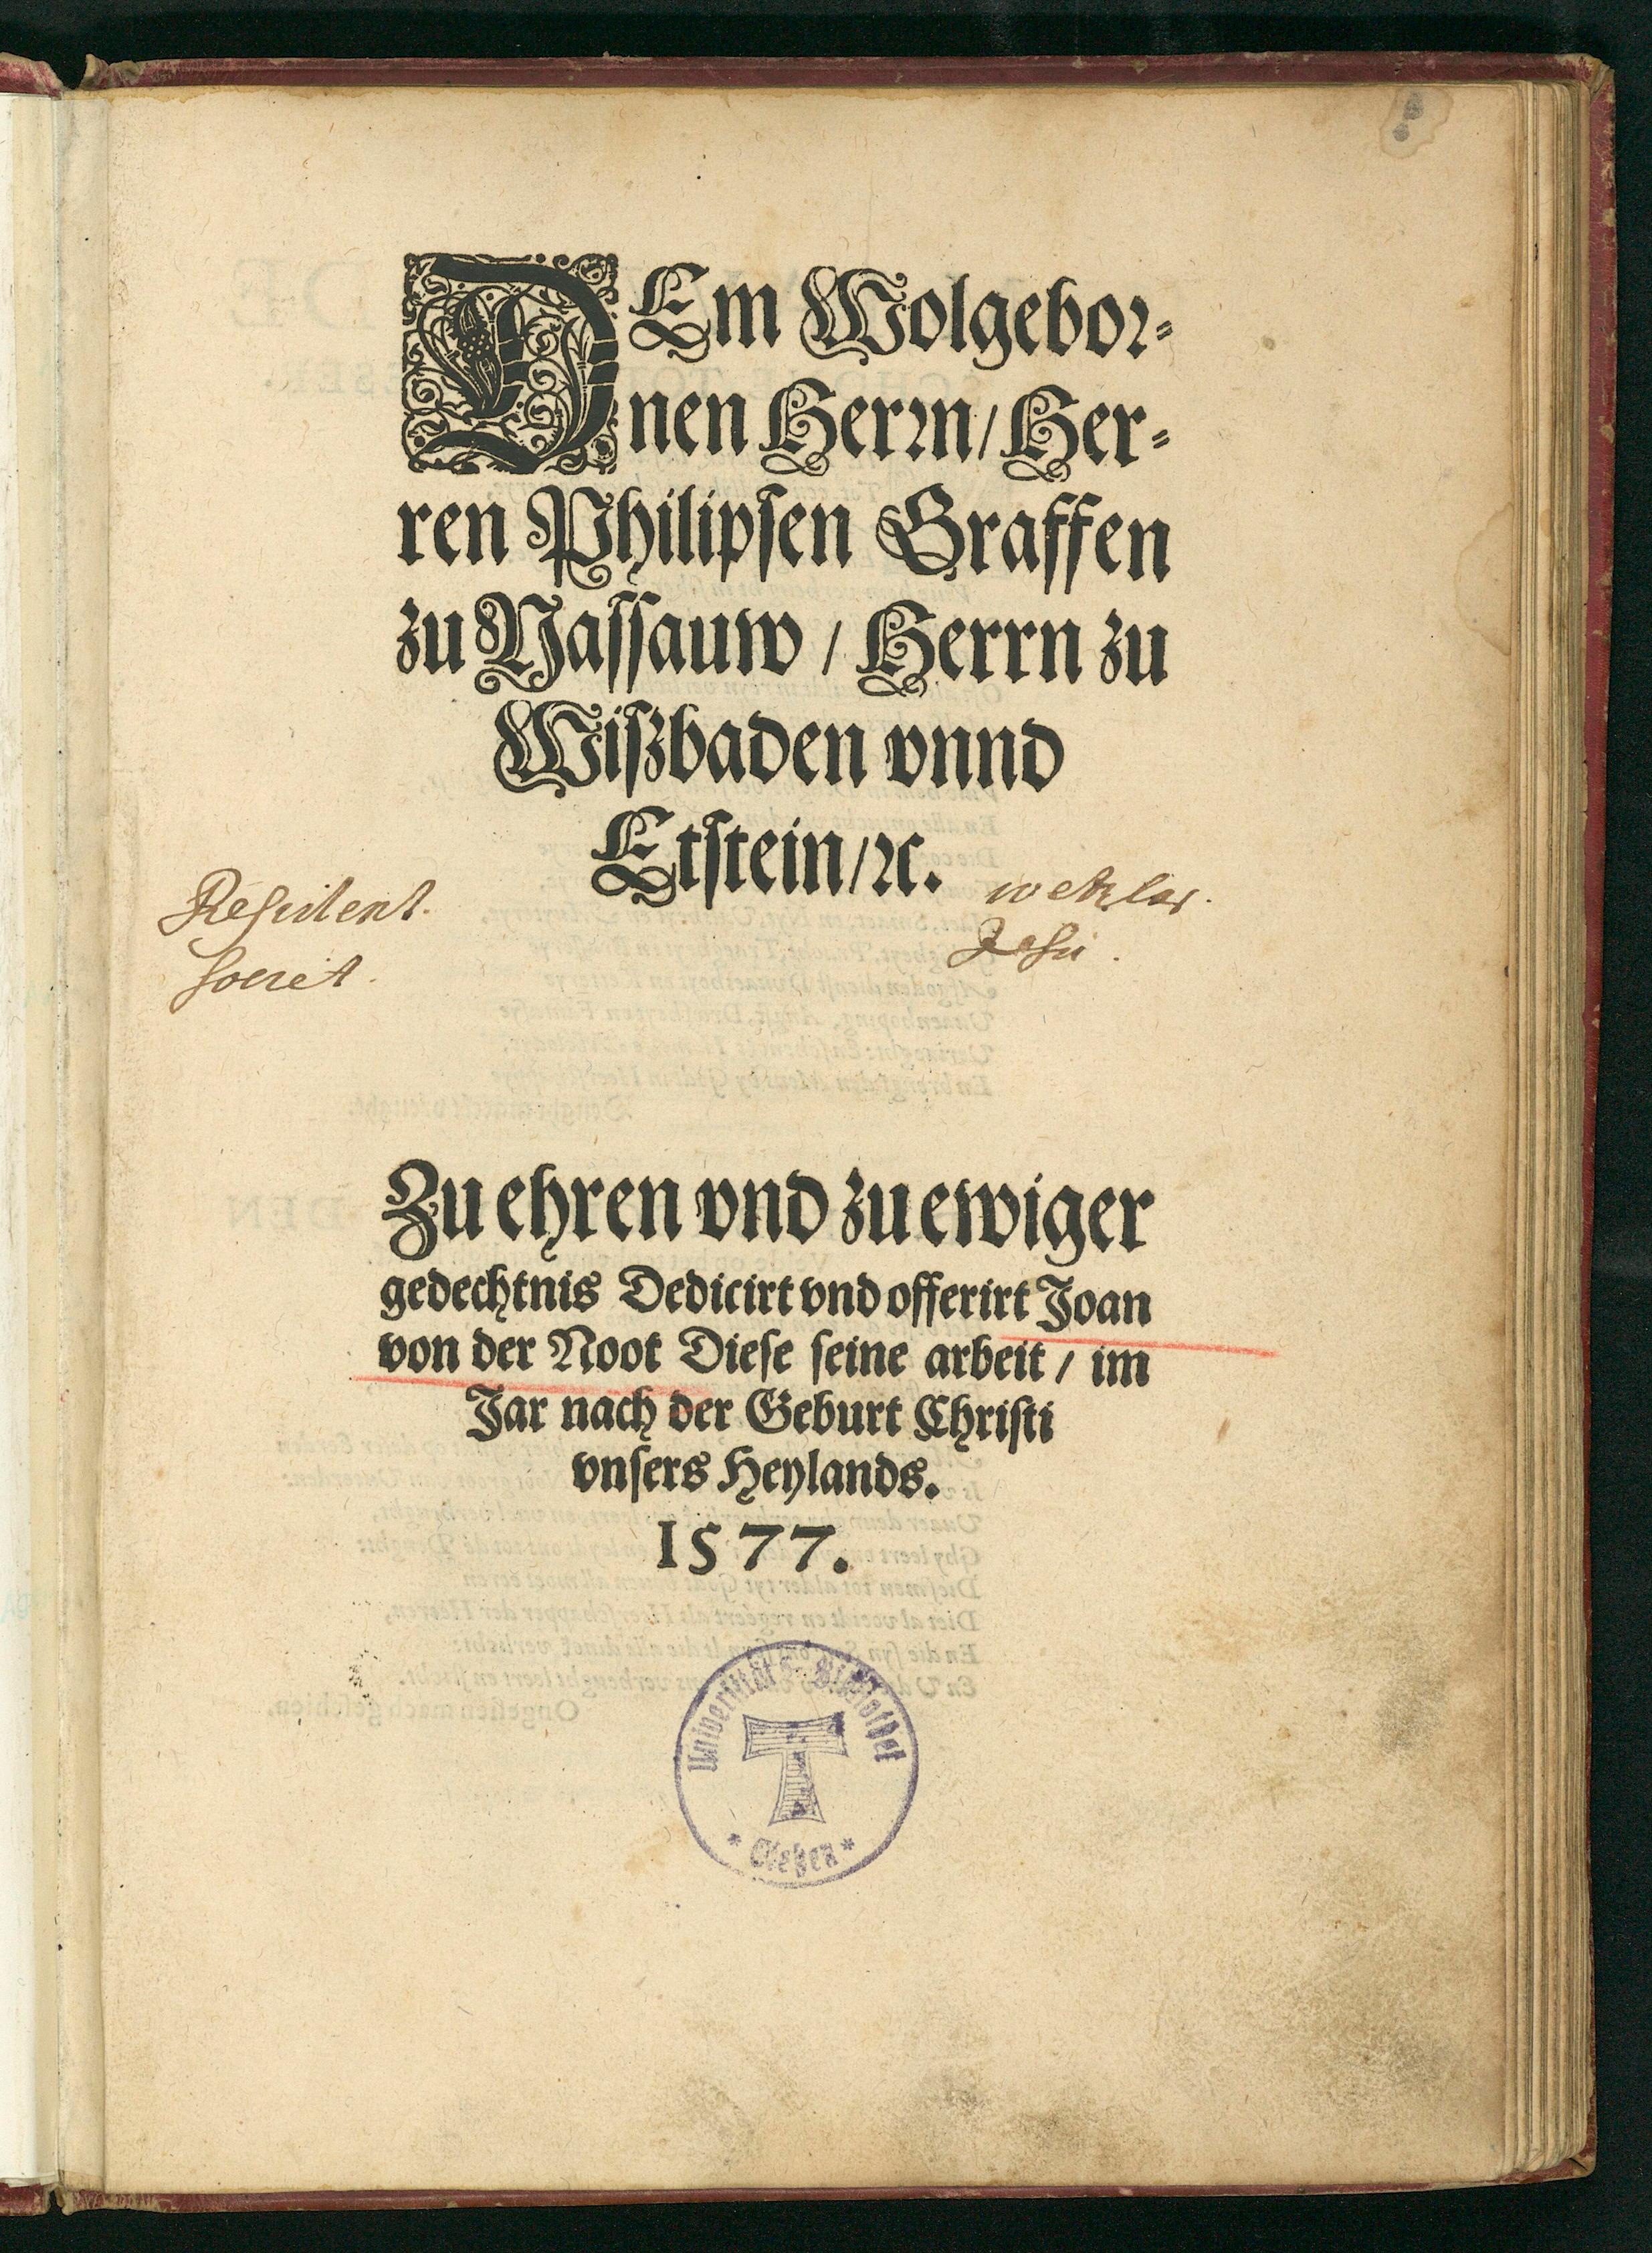 DEm Wolgebor⸗
nen Herrn/ Her⸗
ren Philipſen Graffen
zu Naſſauw / Herrn zu
Wißbaden vnnd
Etſtein/ ꝛc.
Reſident. wetzlar.
Societ. Jeſu.
Zu ehren vnd zu ewiger
gedechtnis Dedicirt vnd offerirt Joan
von der Noot Dieſe ſeine arbeit / im
Jar nach der Geburt Chriſti
vnſers Heylands.
1577.
Universitäts-Bibliothek
* Gießen *